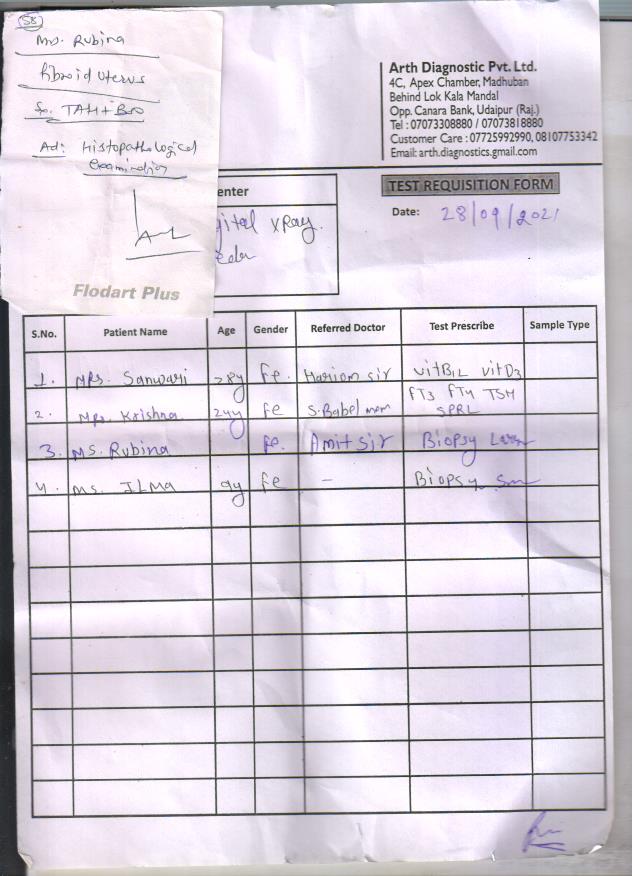 58
Mrs. Rubina
fibroid uterus
TAH + BSO
Ad: Histopathological
Examination
Flodart Plus
Arth Diagnostic Pvt. Ltd.
4C, Apex Chamber, Madhuban
Behind Lok Kala Mandal
Opp. Canara Bank, Udaipur (Raj.)
Tel : 07073308880 / 07073818880
Customer Care : 07725992990, 08107753342
Email: arth.diagnostics.gmail.com
enter
gital xRay.
TEST REQUISITION FORM
Date: 28/09/2021
S.No. Patient Name Age Gender Referred Doctor Test Prescribe Sample Type
1. MRs. Sanwari 28y Fe. Hariom sir vitB12 vitD3
2. Mrs. Krishna 24y fe S. Babel mem FT3 FT4 TSH
SPRL
3. MS. Rubina fe. Amit sir Biopsy
4. MS. ILMA 9y fe - Biopsy